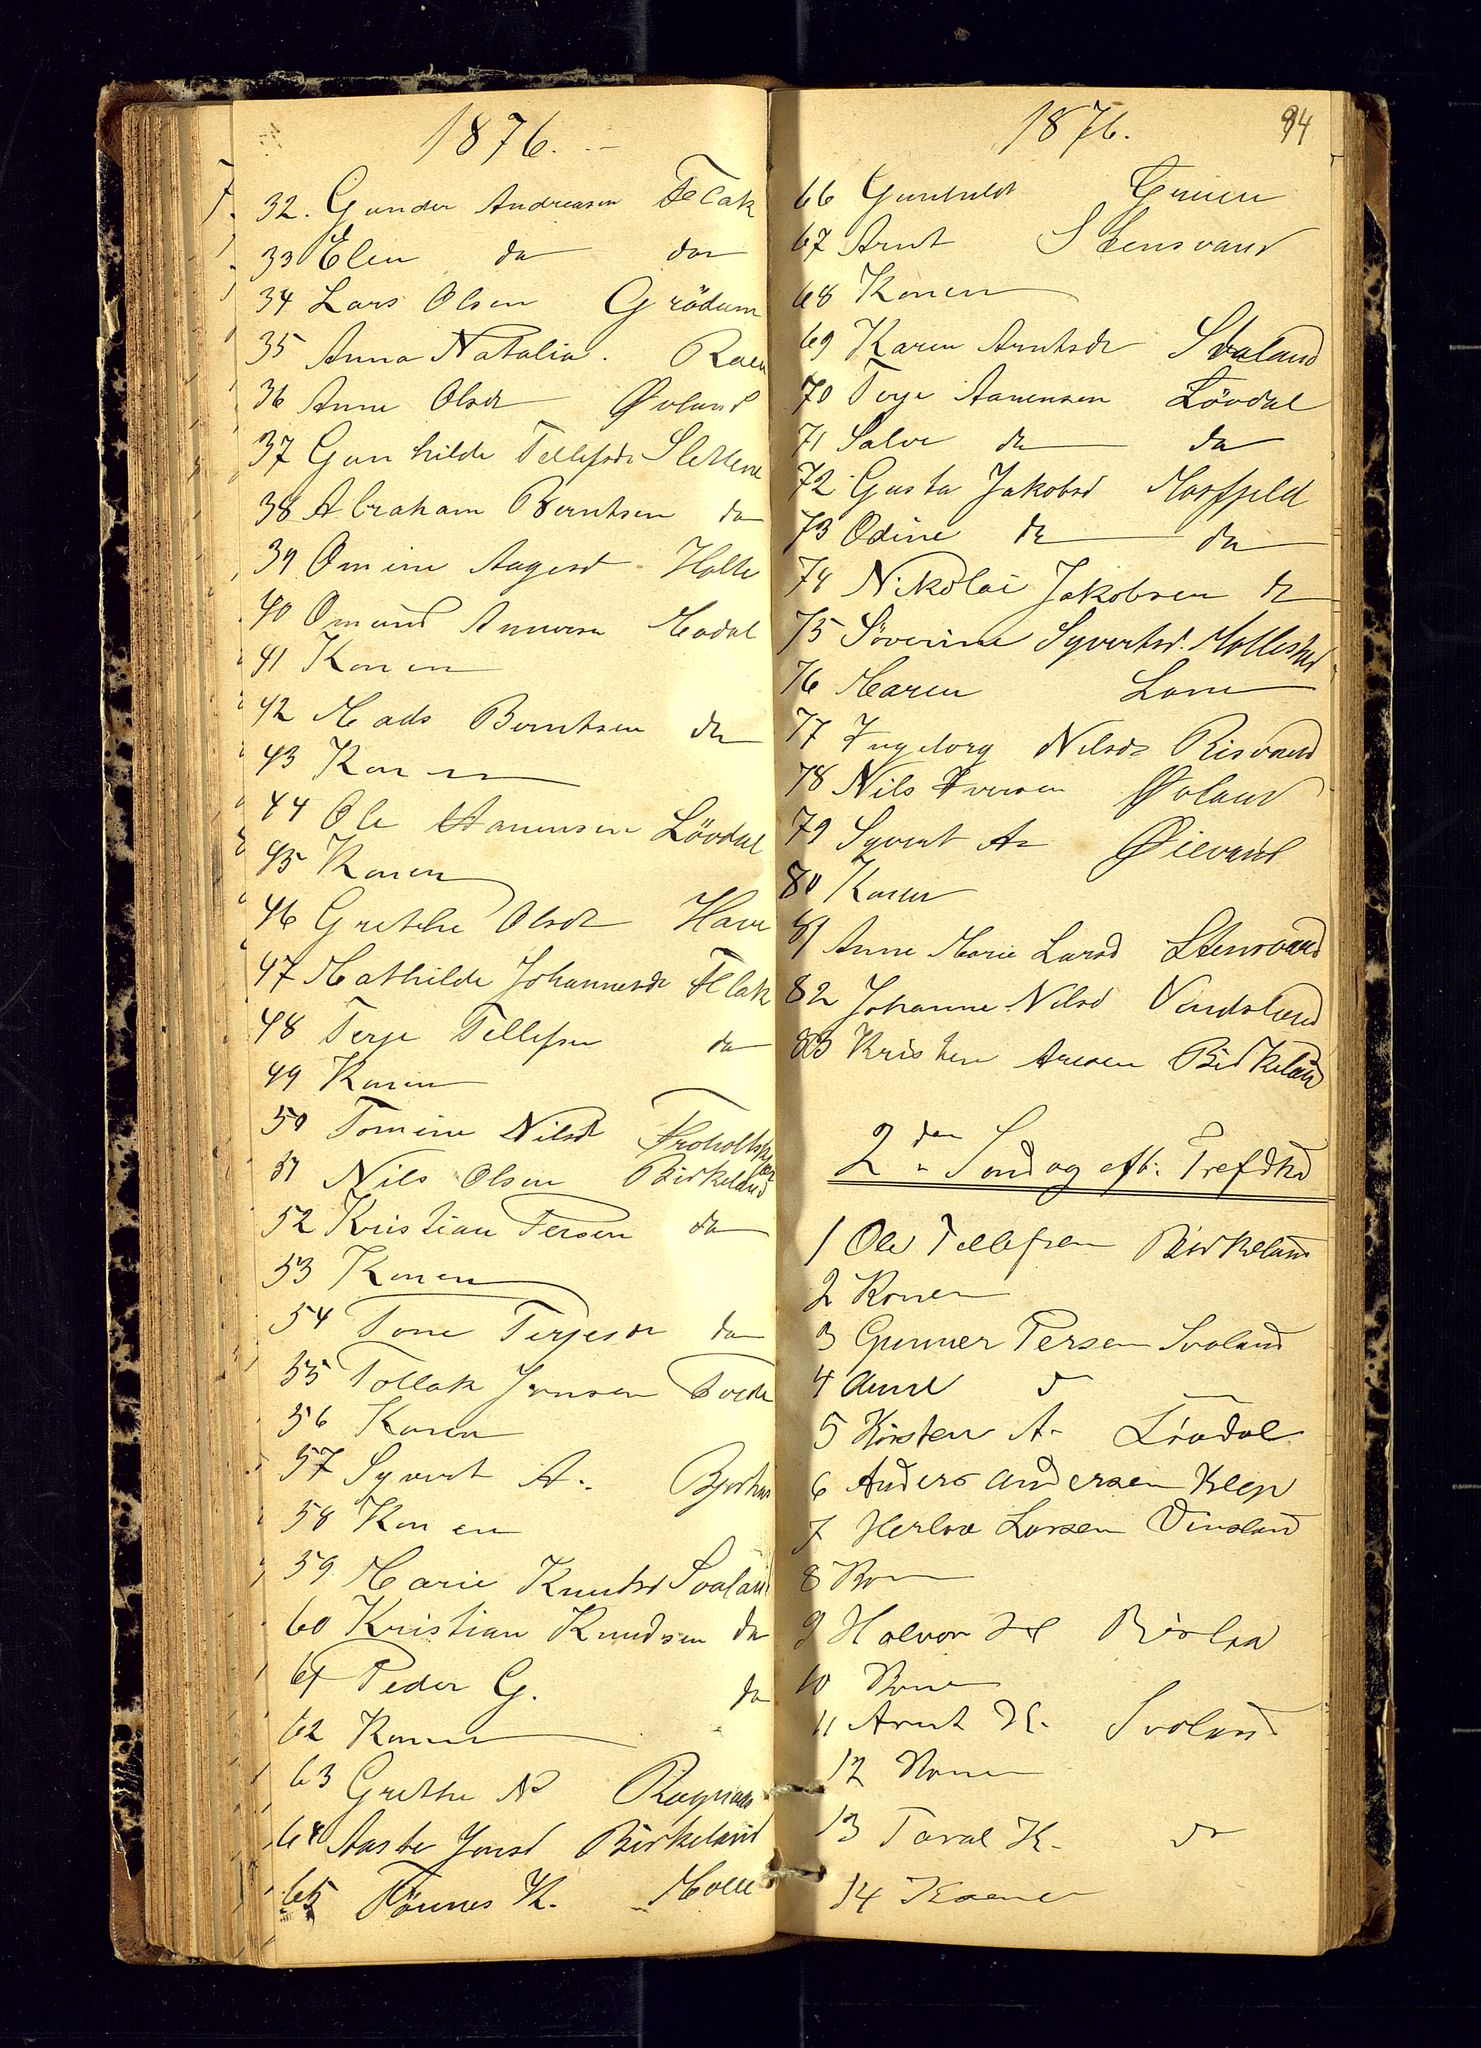 1876.
32. Gunder Andreasen Flak
33 Elen do do
34 Lars Olsen Grödum
35 Anna Natalia. Raen
36 Anne Olsdt Øvland
37 Gunhilde Tellefsdt Slettene
38 Abraham Berntsen do
39 Omine Aagesd Holte
40 Omund Modal
41 Konen
42 Mads Berntsen do
43 Konen
44 Ole Aanensen Lövdal
45 Konen
46 Grethe Olsdt Have
47 Mathilde Johannesdt Flak
48 Terje Tellefsen do
49 Konen
50 Tomine Nilsdt
51 Nils Olsen Birkeland
52 Kristian Persen do
53 Konen
54 Tone Terjesdt do
55 Tollak Jensen
56 Konen
57 Syvert A.
58 Konen
59 Marie Knudsd Svaland
60 Kristian Knudsen do
61 Peder G. do
62 Konen
63 Grethe N
64 Aaste Jensd Birkeland
65 Tönnes K. Moen
1876.
94
66 Gunhild
67 Arnt Stensvand
68 Konen
69 Karen Arntsdt Svaland
70 Terje Aanensen Lövdal
71 Salve do do
72 Gusta Jakobsd Mosfjeld
73 Odine do do
74 Nikolai Jakobsen do
75 Söverine Syvertsd. Mollestad
76 Maren Lone
77 Ingeborg Nilsdt Risvand
78 Nils Iversen Øvland
79 Syvert A Øievand
80 Konen
81 Anne Marie Larsd Stensvand
82 Johanne Nilsd Vindsland
83 Kristen Aresen Birkeland
2den Søndag eft. Trefdhd
1 Ole Tellefsen Birkeland
2 Konen
3 Gunner Persen Svaland
4 Anne d
5 Kirsten A. Lövdal
6 Anders Andersen Klep
7 Herlov Larsen Vinsland
8 Kon
9 Halvor H Rislaa
10 Konen
11 Arnt K. Svoland
12 Konen
13 Taral K. do
14 Konen